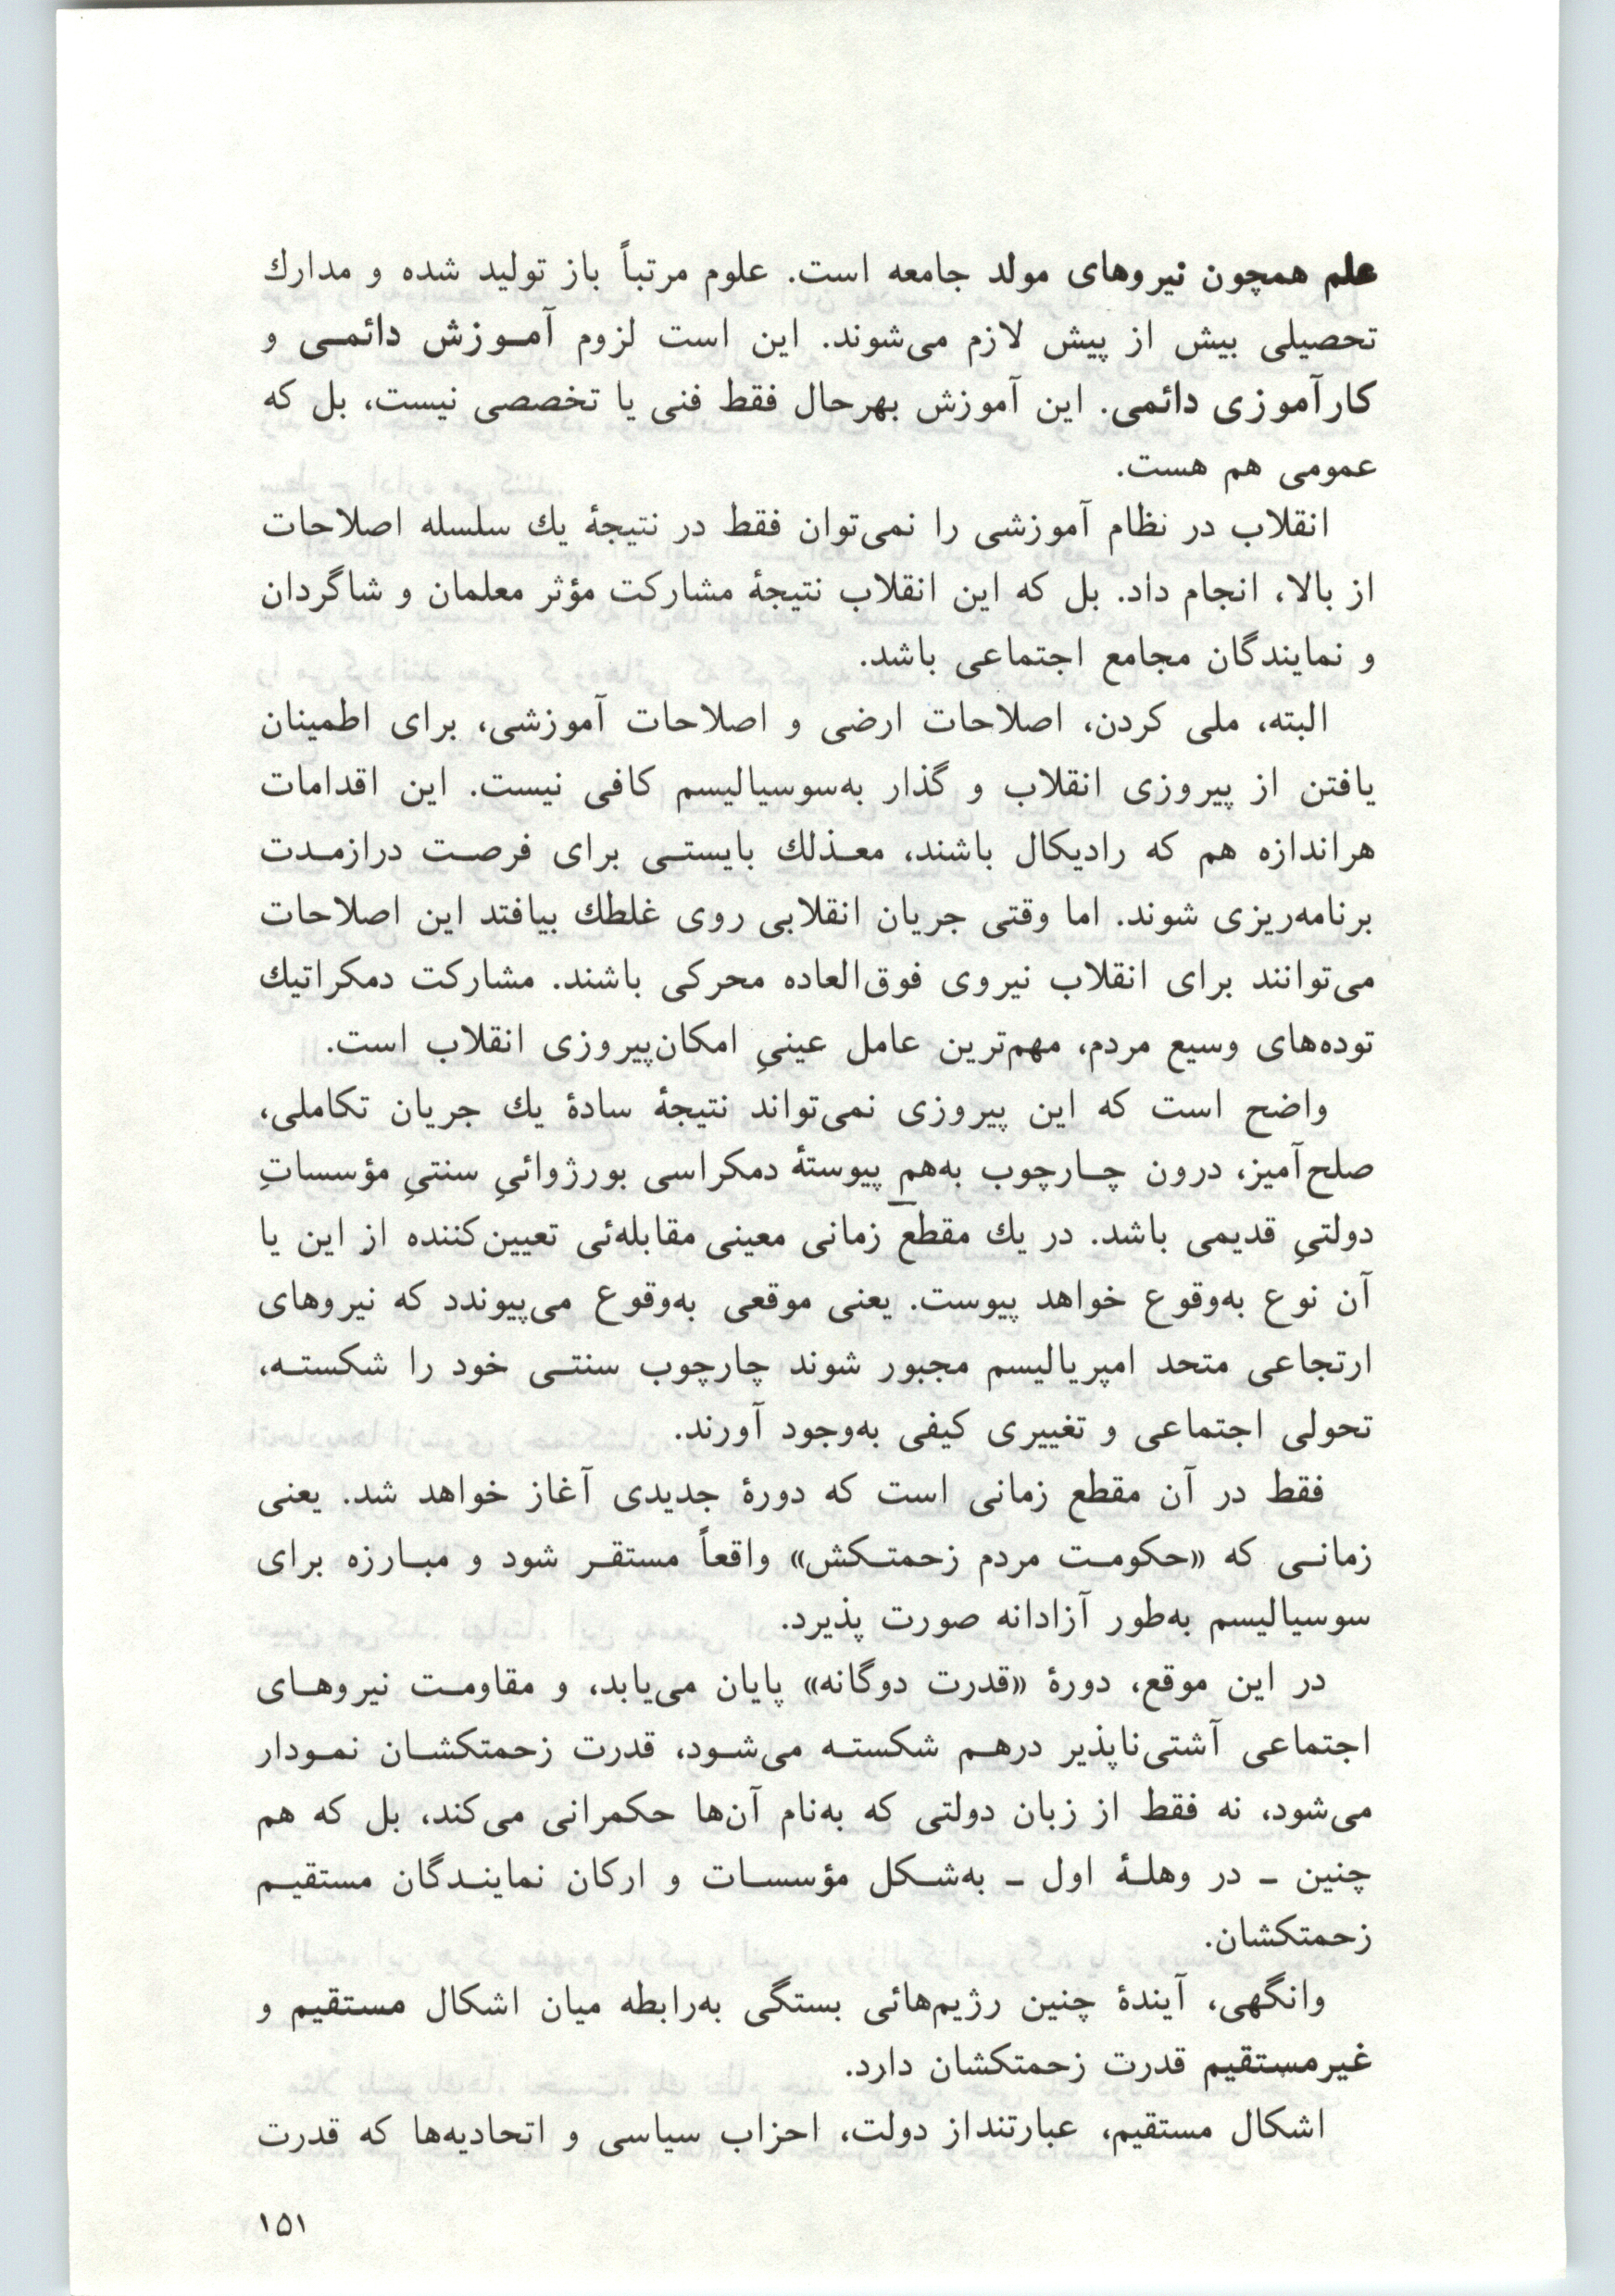 علم همچون نیروهای مولد جامعه است. علوم مرتباً باز تولید شده و مدارك
تحصیلی بیش از پیش لازم می‌شوند. این است لزوم آمـوزش دائمـی و
کارآموزی دائمی. این آموزش بهرحال فقط فنی یا تخصصی نیست، بل که
عمومی هم هست.
انقلاب در نظام آموزشی را نمی‌توان فقط در نتیجهٔ یك سلسله اصلاحات
از بالا، انجام داد. بل که این انقلاب نتیجهٔ مشارکت مؤثر معلمان و شاگردان
و نمایندگان مجامع اجتماعی باشد.
البته، ملی کردن، اصلاحات ارضی و اصلاحات آموزشی، برای اطمینان
یافتن از پیروزی انقلاب و گذار به‌سوسیالیسم کافی نیست. این اقدامات
هراندازه هم که رادیکال باشند، معـذلك بایستـی برای فرصـت درازمـدت
برنامه‌ریزی شوند. اما وقتی جریان انقلابی روی غلطك بیافتد این اصلاحات
می‌توانند برای انقلاب نیروی فوق‌العاده محرکی باشند. مشارکت دمکراتیك
توده‌های وسیع مردم، مهم‌ترین عامل عینیِ امکان‌پیروزی انقلاب است.
واضح است که این پیروزی نمی‌تواند نتیجهٔ سادهٔ یك جریان تکاملی،
صلح‌آمیز، درون چـارچوب به‌هم پیوستهٔ دمکراسی بورژوائیِ سنتیِ مؤسساتِ
دولتیِ قدیمی باشد. در یك مقطع زمانی معینی مقابله‌ئی تعیین‌کننده از این یا
آن نوع به‌وقوع خواهد پیوست. یعنی موقعی به‌وقوع می‌پیوندد که نیروهای
ارتجاعی متحد امپریالیسم مجبور شوند چارچوب سنتـی خود را شکستـه،
تحولی اجتماعی و تغییری کیفی به‌وجود آورند.
فقط در آن مقطع زمانی است که دورهٔ جدیدی آغاز خواهد شد. یعنی
زمانـی که «حکومـت مردم زحمتـکش» واقعاً مستقـر شود و مبـارزه برای
سوسیالیسم به‌طور آزادانه صورت پذیرد.
در این موقع، دورهٔ «قدرت دوگانه» پایان می‌یابد، و مقاومـت نیروهـای
اجتماعی آشتی‌ناپذیر درهـم شکستـه می‌شـود، قدرت زحمتکشـان نمـودار
می‌شود، نه فقط از زبان دولتی که به‌نام آن‌ها حکمرانی می‌کند، بل که هم
چنین ـ در وهلـهٔ اول ـ به‌شـکل مؤسسـات و ارکان نماینـدگان مستقیـم
زحمتکشان.
وانگهی، آیندهٔ چنین رژیم‌هائی بستگی به‌رابطه میان اشکال مستقیم و
غیرمستقیم قدرت زحمتکشان دارد.
اشکال مستقیم، عبارتنداز دولت، احزاب سیاسی و اتحادیه‌ها که قدرت
۱۵۱